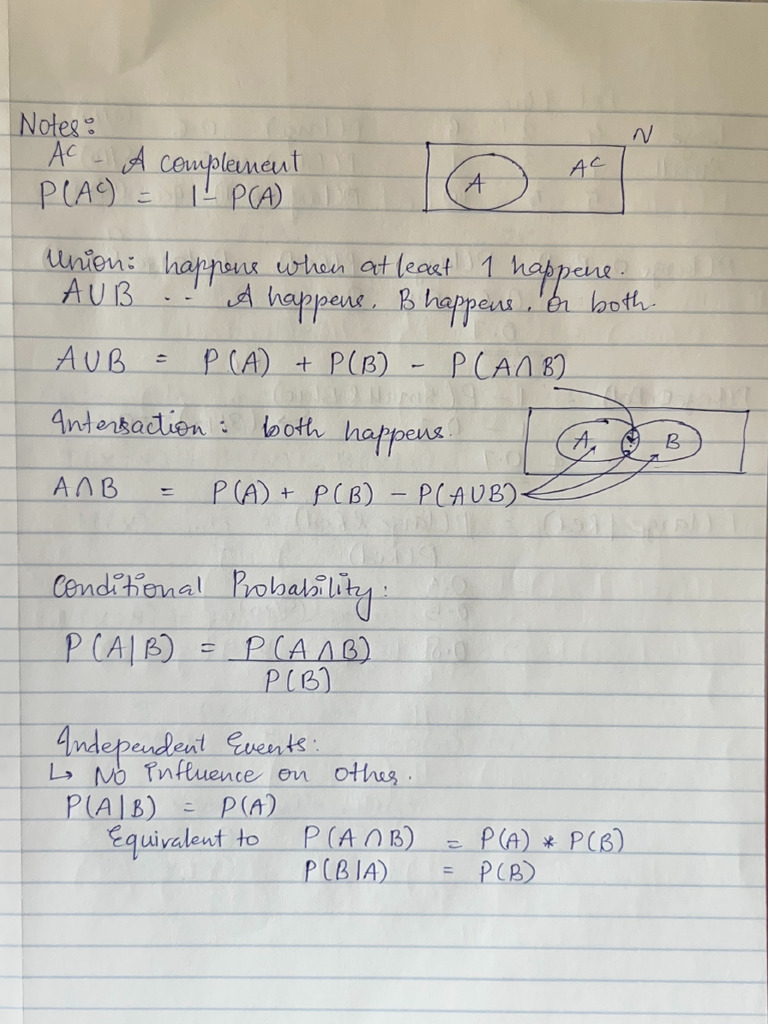 Notes:
Aᶜ - A complement
P(Aᶜ) = 1 - P(A)
N
A Aᶜ
Union: happens when at least 1 happens.
A∪B .. A happens, B happens, or both.
A∪B = P(A) + P(B) - P(A∩B)
Intersaction: both happens.
A B
A∩B = P(A) + P(B) - P(A∪B)
Conditional Probability:
P(A|B) = P(A∩B)
P(B)
Independent Events:
↳ No influence on other.
P(A|B) = P(A)
Equivalent to P(A∩B) = P(A) * P(B)
P(B|A) = P(B)